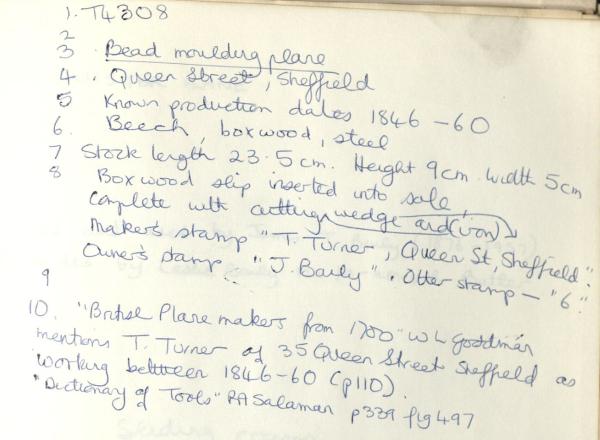 1. T4308
2
3. Bead moulding plane
4. Queen Street, Sheffield
5 Known production dates 1846 - 60
6. Beech, boxwood, steel
7 Stock length 23.5cm. Height 9cm width 5cm
8 Boxwood slip inserted into sole,
Complete with cutting wedge and (iron)
Maker's stamp "T. Turner, Queen St, Sheffield".
Owner's stamp "J. Baily". Otter stamp - "6".
9
10. "British Plane makers from 1700" W L Goodman
mentions T. Turner of 35 Queen Street Sheffield as
working between 1846-60 (p110).
"Dictionary of Tools" RA Salaman p339 fig 497